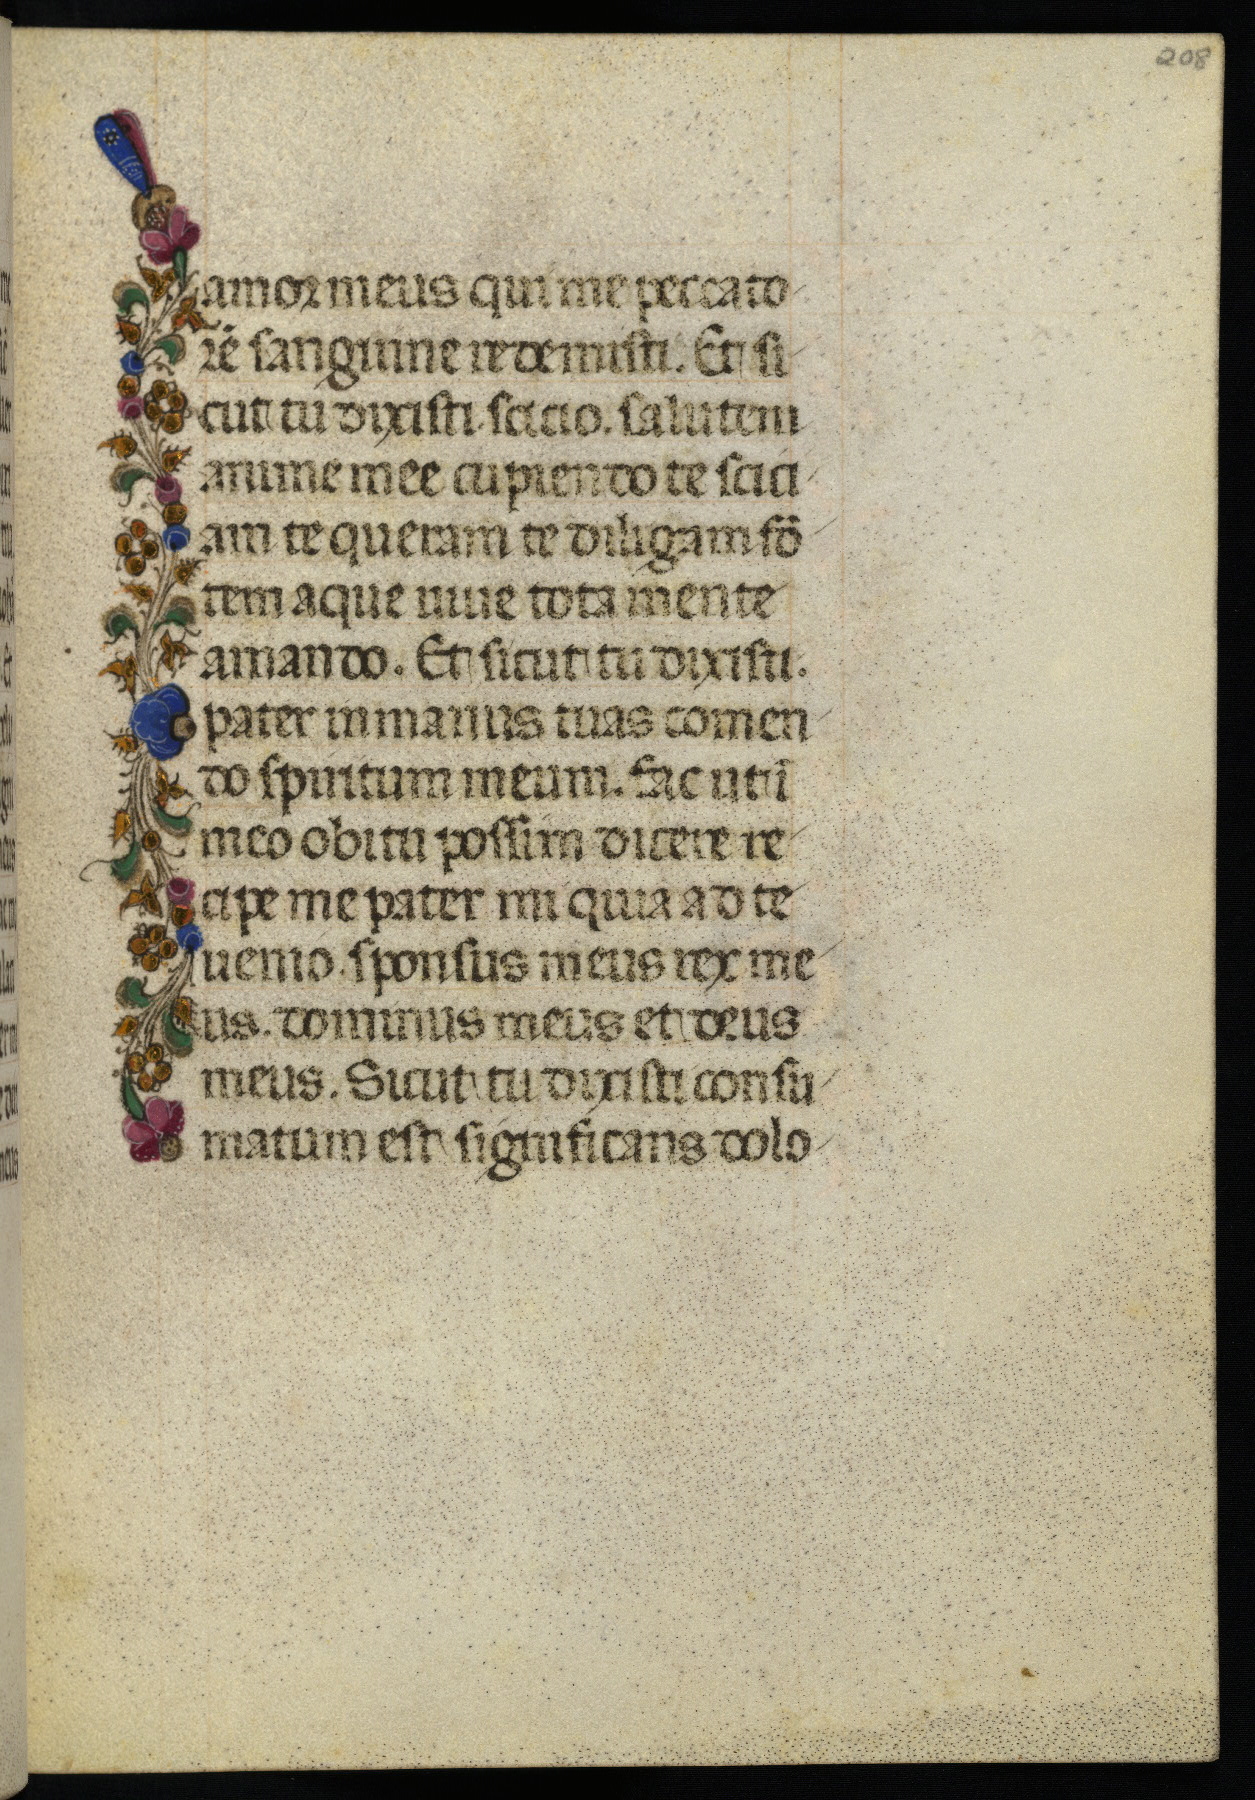 208
amor meus qui me peccato
rē sanguine redemisti. Et si
cut tu dixisti scicio. salutem
anime mee cupiendo te scici
am te queram te diligam fō
tem aque uiue tota mente
amando. Et sicut tu dixisti.
pater in manus tuas comen
do spiritum meum. fac ut ī
meo obitu possim dicere re
cipe me pater mi quia ad te
uenio. sponsus meus rex me
us. dominus meus et deus
meus. Sicut tu dixisti consu
matum est significans dolo